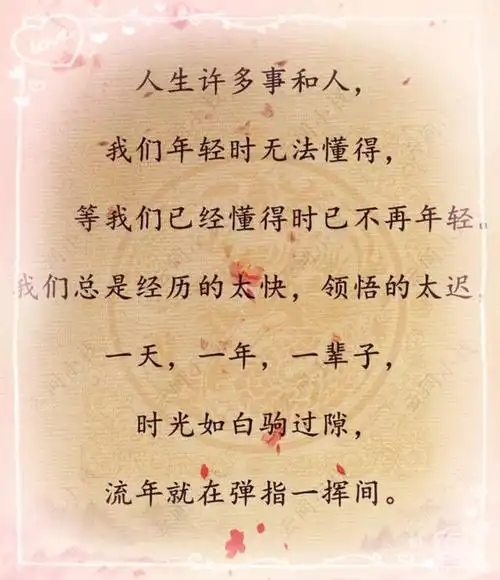 人生许多事和人，
我们年轻时无法懂得，
等我们已经懂得时已不再年轻。
我们总是经历的太快，领悟的太迟，
一天，一年，一辈子，
时光如白驹过隙，
流年就在弹指一挥间。